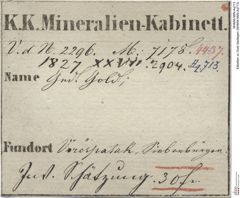 K.K. Mineralien-Kabinett.
V. d. N. 2296. M: 7175. 4437.
1827 XXVII. 2904. 713.
Name Ged. Gold;
Fundort Vöröspatak, Siebenbürgen.
Int. Schätzung. 30 f.